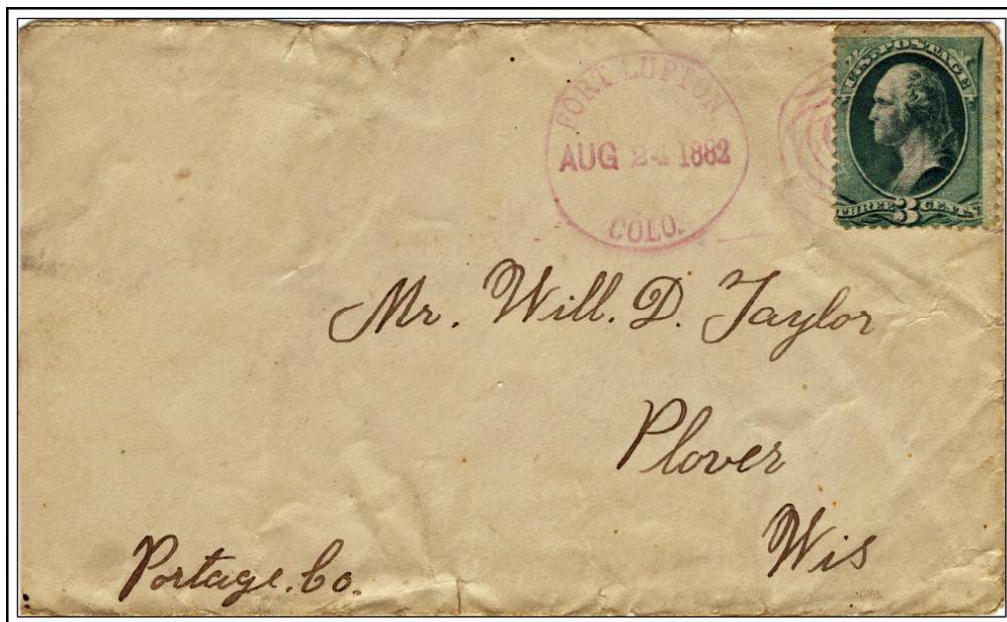 FORT LUPTON
AUG 24 1882
COLO.
U.S. POSTAGE
THREE 3 CENTS
Mr. Will. D. Taylor
Plover
Wis
Portage. Co.